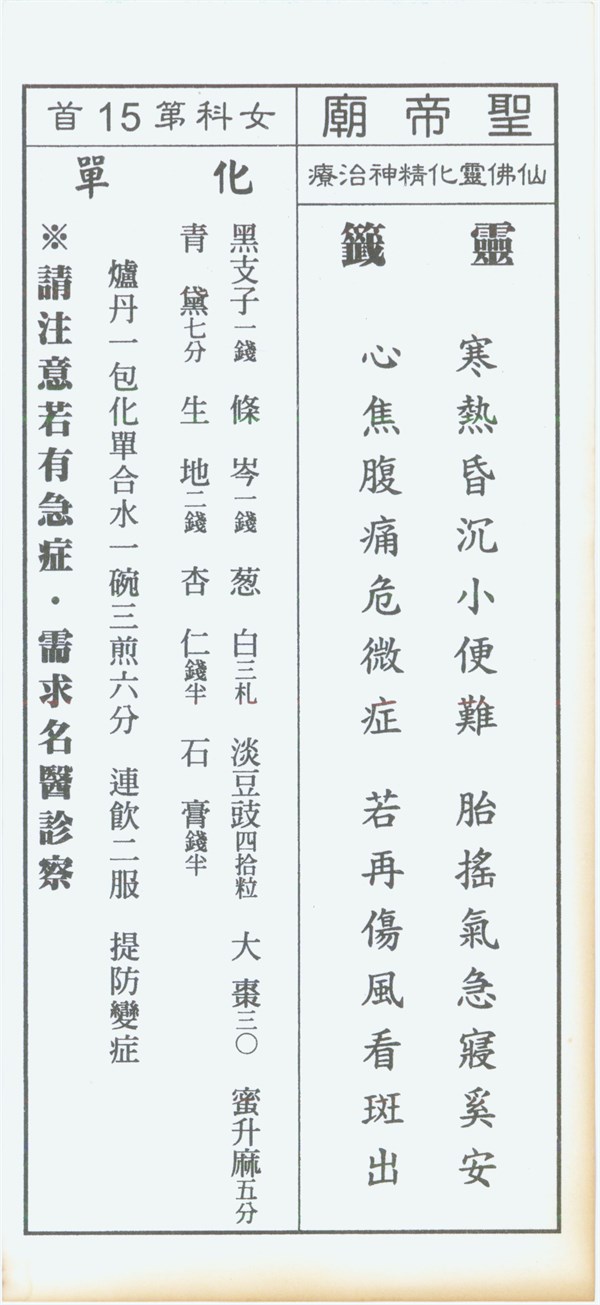 聖帝廟
仙佛靈化精神治療
靈籤
寒熱昏沉小便難　胎搖氣急寢奚安
心焦腹痛危微症　若再傷風看斑出
女科第15首
化單
黑支子一錢　條岑一錢　葱白三札　淡豆豉四拾粒　大棗三〇　蜜升麻五分
青黛七分　生地二錢　杏仁錢半　石膏錢半
爐丹一包化單合水一碗三煎六分　連飲二服　提防變症
※請注意若有急症．需求名醫診察